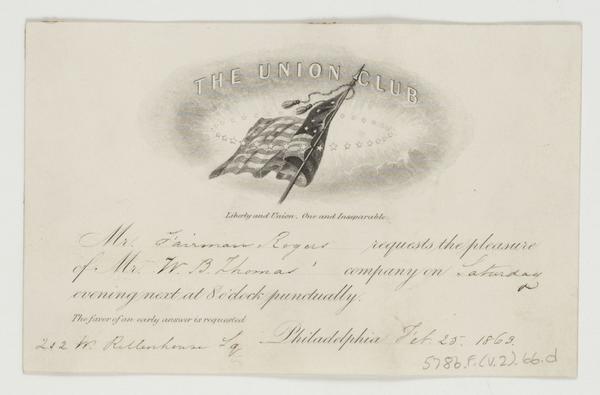 THE UNION CLUB
Liberty and Union, One and Inseparable.
Mr. Fairman Rogers requests the pleasure
of Mr. W. B. Thomas' company on Saturday
evening next at 8 o'clock punctually.
The favor of an early answer is requested
202 W. Rittenhouse Sq. Philadelphia Feb. 25. 1863.
5786.F.(v.2).66.d